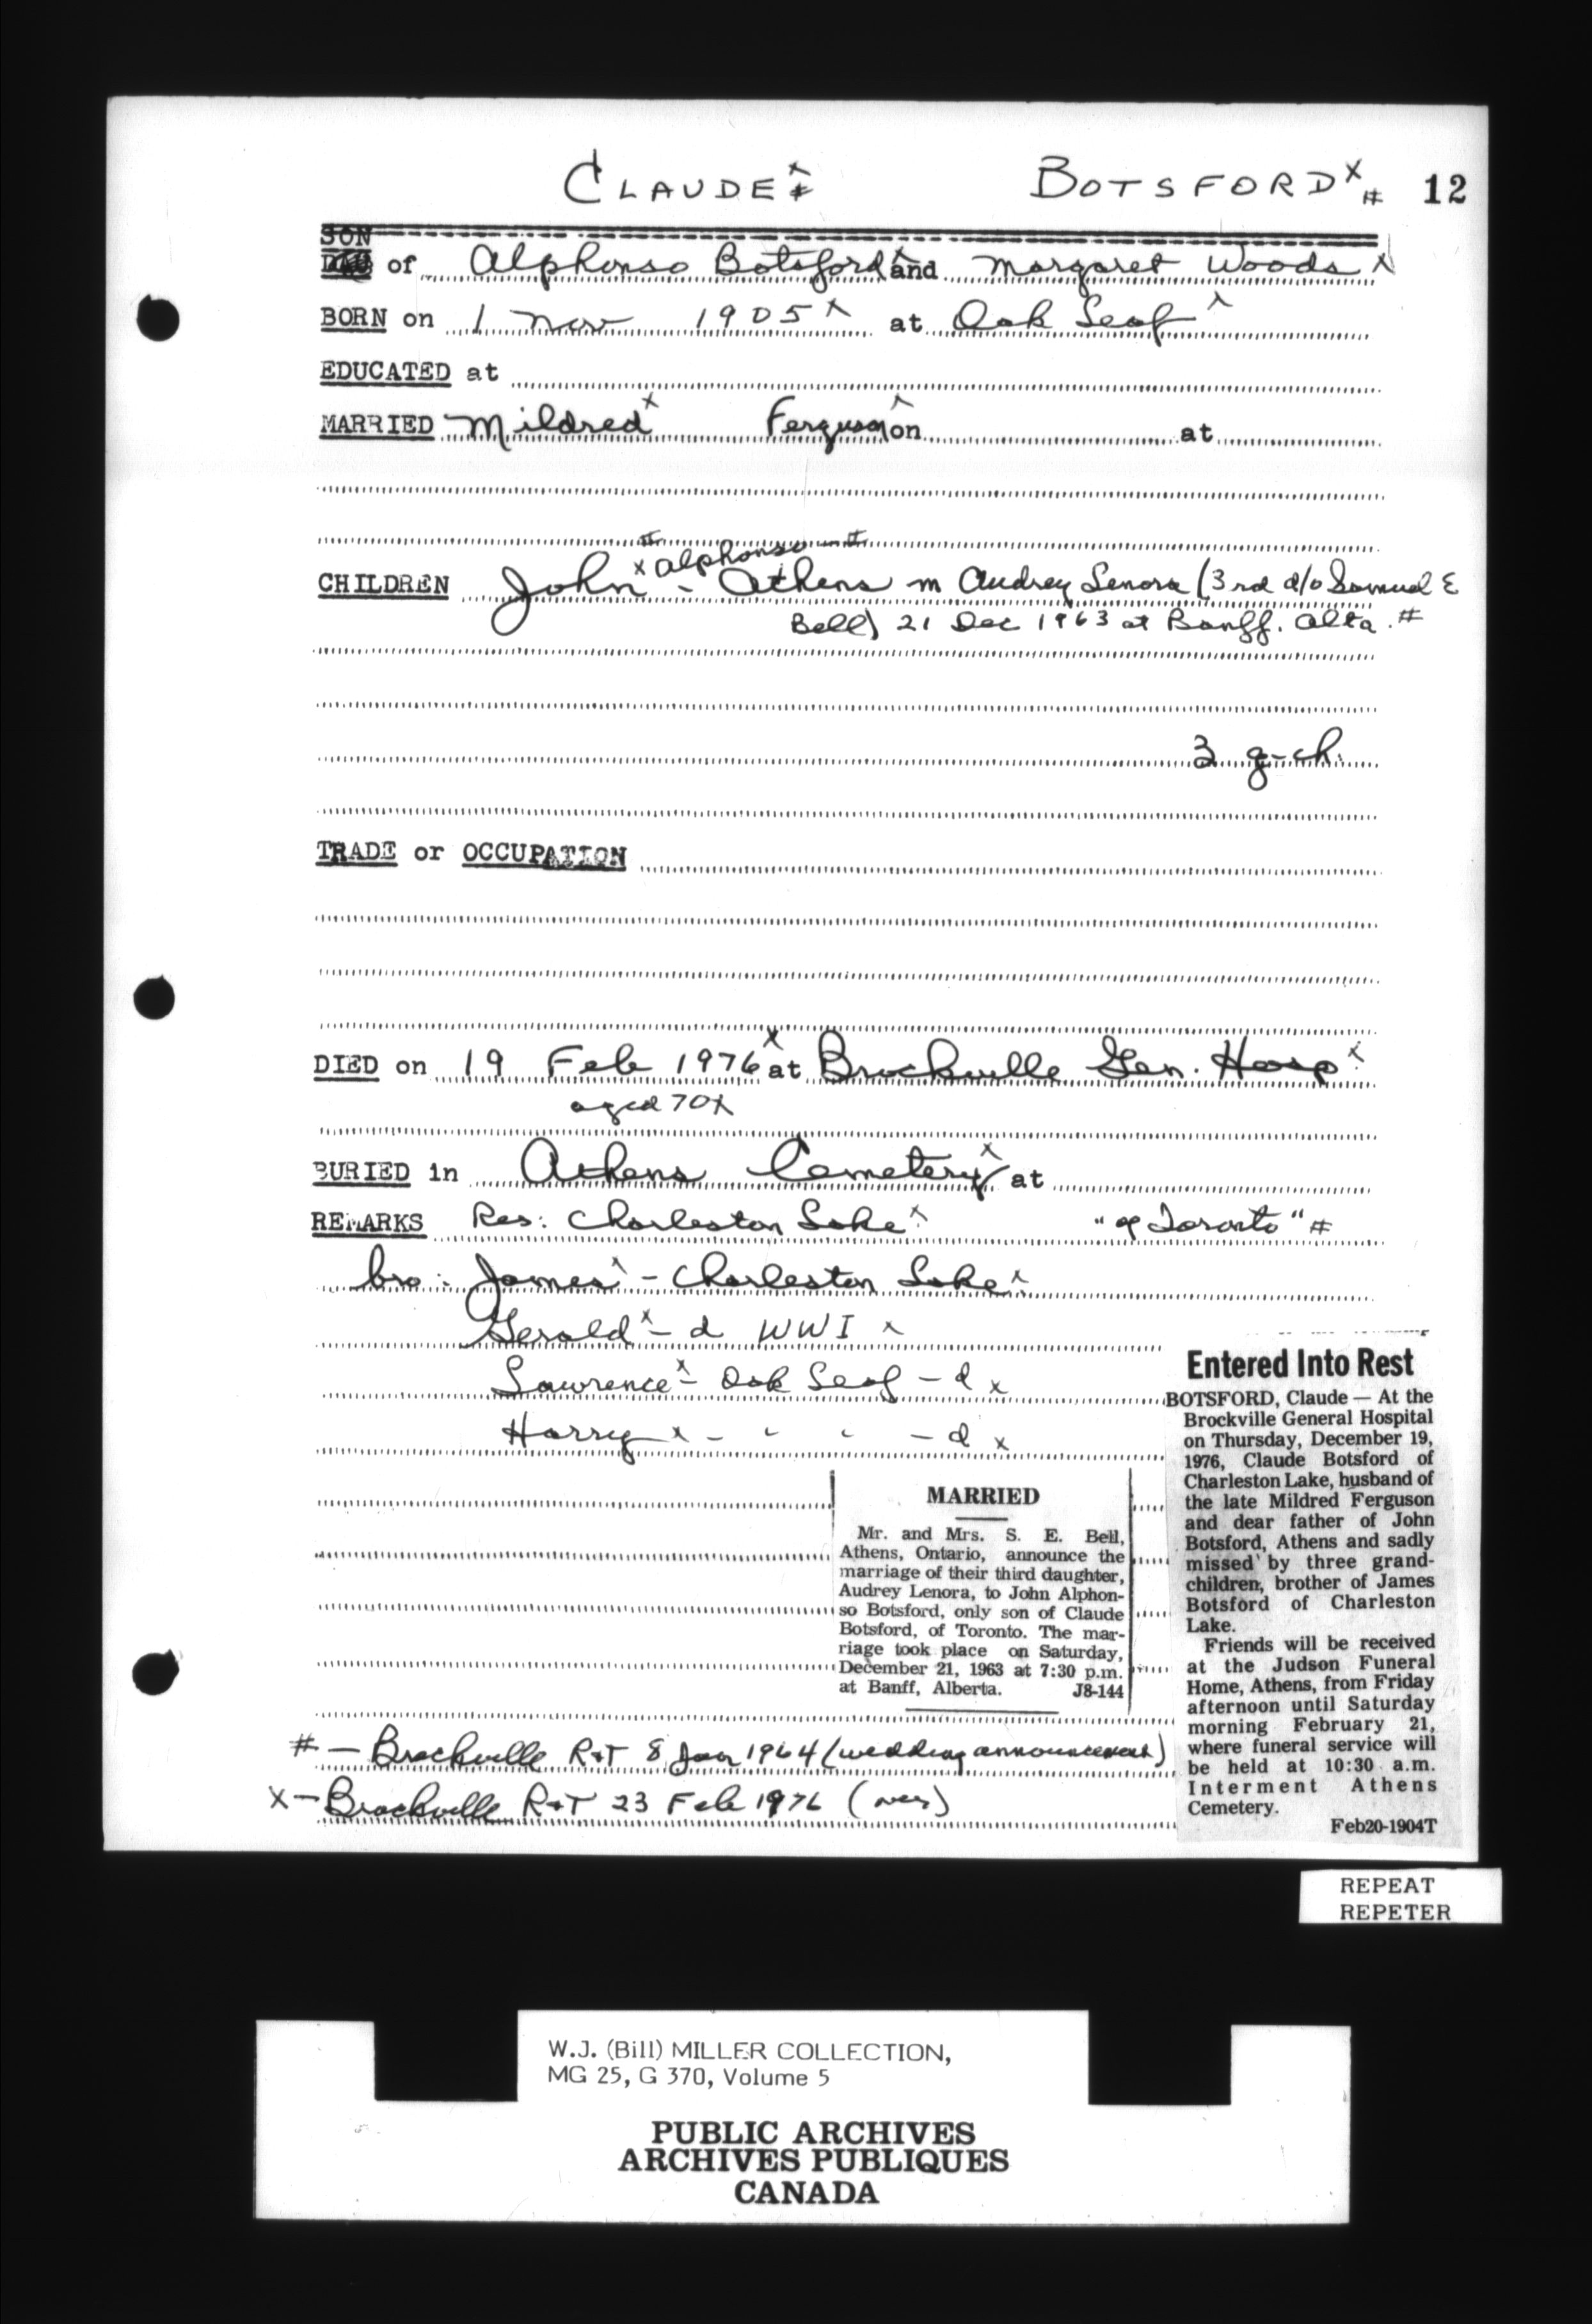 CLAUDE x # BOTSFORD x # 12
SON
DAU of Alphonso Botsford x and Margaret Woods x
BORN on 1 Nov 1905 x at Oak Leaf x
EDUCATED at
MARRIED Mildred x Ferguson x on at
# Alphonso - #
CHILDREN John x - Athens m Audrey Lenora (3rd d/o Samuel E
Bell) 21 Dec 1963 at Banff. Alta. #
3 g-ch.
TRADE or OCCUPATION
DIED on 19 Feb 1976 x at Brockville Gen. Hosp x
aged 70 x
BURIED in Athens Cemetery x at
REMARKS Res: Charleston Lake x "of Toronto" #
bro: James x - Charleston Lake x
Gerald x - d WWI x
Lawrence x - Oak Leaf - d x
Harry x - " " - d x
MARRIED
Mr. and Mrs. S. E. Bell,
Athens, Ontario, announce the
marriage of their third daughter,
Audrey Lenora, to John Alphon-
so Botsford, only son of Claude
Botsford, of Toronto. The mar-
riage took place on Saturday,
December 21, 1963 at 7:30 p.m.
at Banff, Alberta. J8-144
Entered Into Rest
BOTSFORD, Claude — At the
Brockville General Hospital
on Thursday, December 19,
1976, Claude Botsford of
Charleston Lake, husband of
the late Mildred Ferguson
and dear father of John
Botsford, Athens and sadly
missed by three grand-
children, brother of James
Botsford of Charleston
Lake.
Friends will be received
at the Judson Funeral
Home, Athens, from Friday
afternoon until Saturday
morning February 21,
where funeral service will
be held at 10:30 a.m.
Interment Athens
Cemetery.
Feb20-1904T
# - Brockville R+T 8 Jan 1964 (wedding announcement)
x - Brockville R+T 23 Feb 1976 (over)
REPEAT
REPETER
W.J. (Bill) MILLER COLLECTION,
MG 25, G 370, Volume 5
PUBLIC ARCHIVES
ARCHIVES PUBLIQUES
CANADA